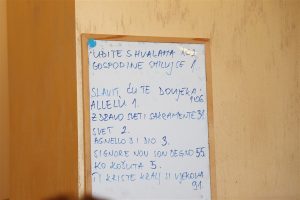 UĐITE S HVALAMA
GOSPODINE SMILUJ SE 1
SLAVIT ĆU TE DOVIJEKA
ALLELU 1. 196
ZDRAVO SVETI SAKRAMENTE 31
SVET 2.
AGNELLO DI DIO 3.
SIGNORE NON SON DEGNO 55
KO KOŠUTA 5.
TI KRISTE KRALJ SI VJEKOVA
91